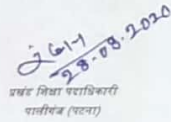 28-08-2020
प्रखंड शिक्षा पदाधिकारी
पालीगंज (पटना)